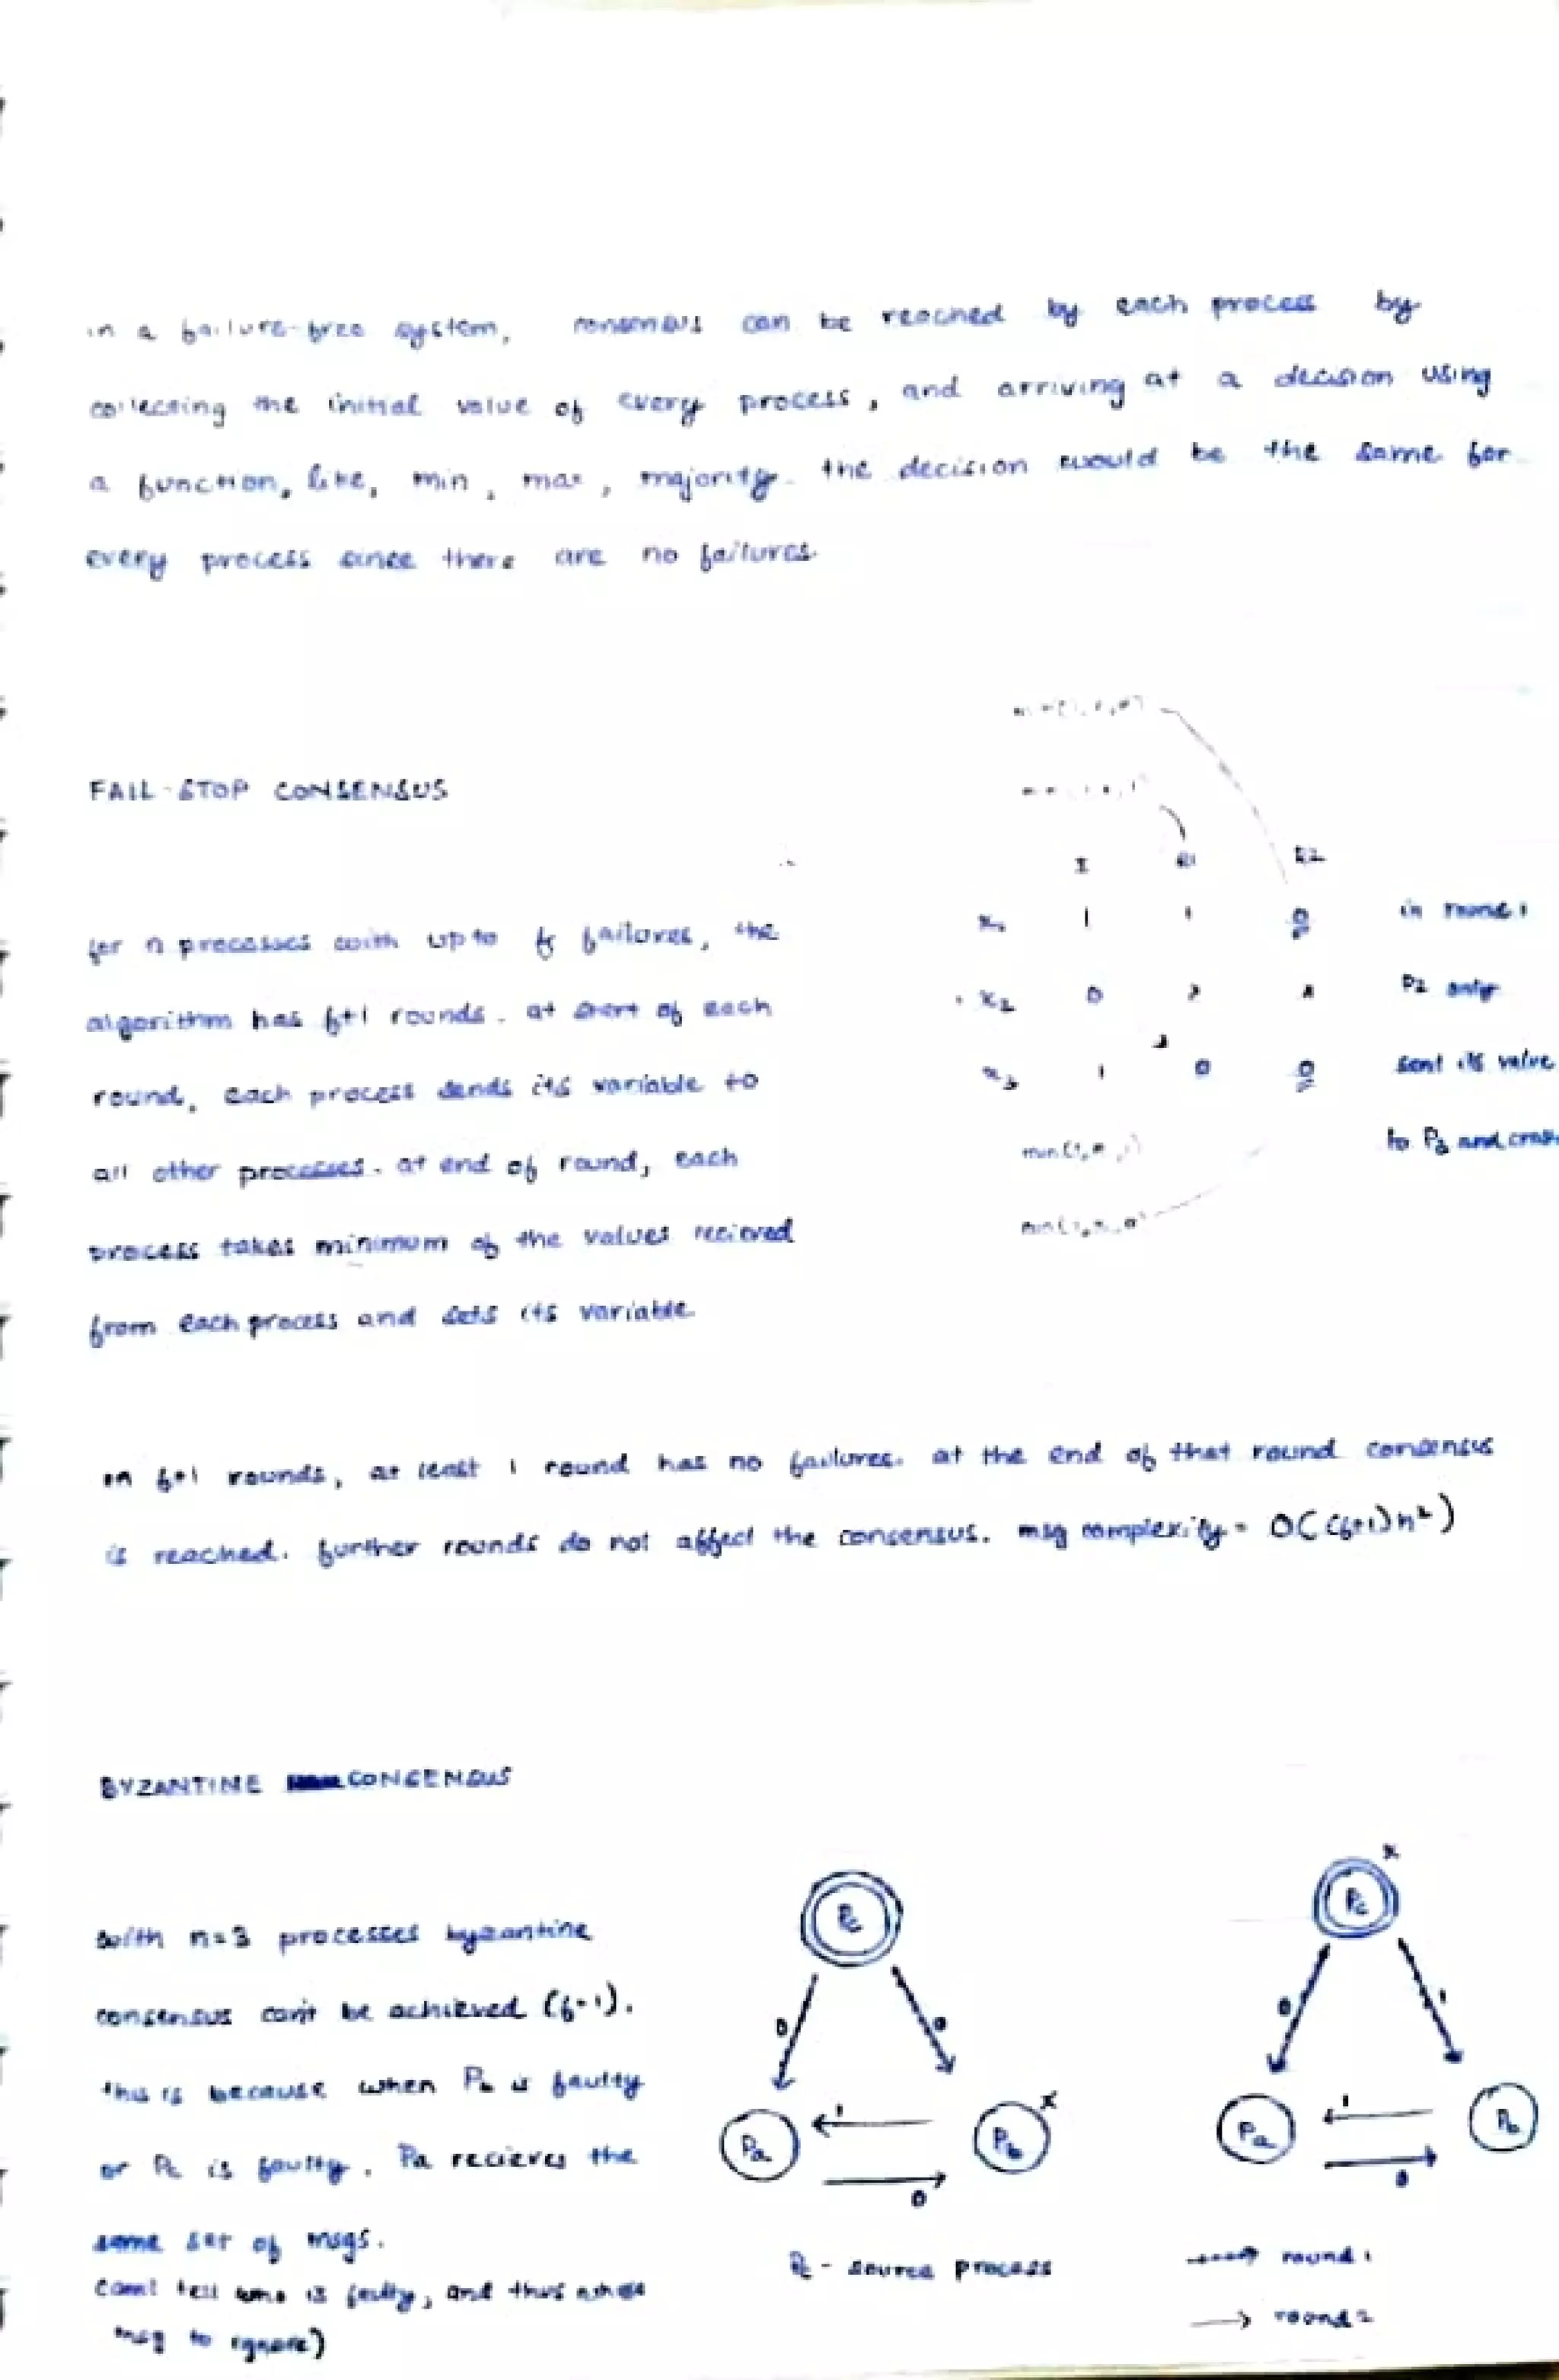 in a failure-free system, consensus can be reached by each process by
collecting the initial value of every process, and arriving at a decision using
a function, like, min, max, majority. the decision would be the same for
every process since there are no failures
FAIL-STOP CONSENSUS
I R1 R2
for n processes with upto f failures, the
x1 1 1 0 in round 1
algorithm has f+1 rounds. at start of each
x2 0 P2 only
round, each process sends its variable to
x3 1 0 0 sent its value
all other processes. at end of round, each
to P3 and
process takes minimum of the values recieved
from each process and sets its variable
in f+1 rounds, at least 1 round has no failures. at the end of that round consensus
is reached. further rounds do not affect the consensus. msg complexity = O((f+1)n²)
BYZANTINE CONSENSUS
with n=3 processes byzantine
consensus can't be achieved (f=1).
this is because when Pb is faulty
or Pc is faulty, Pa recieves the
same set of msgs.
can't tell who is faulty, and thus which
msg to ignore)
Pc x
Pc
0 0
0 1
Pa 1 Pb x
0
Pa 1 Pb
0
Pc - source process
round 1
round 2